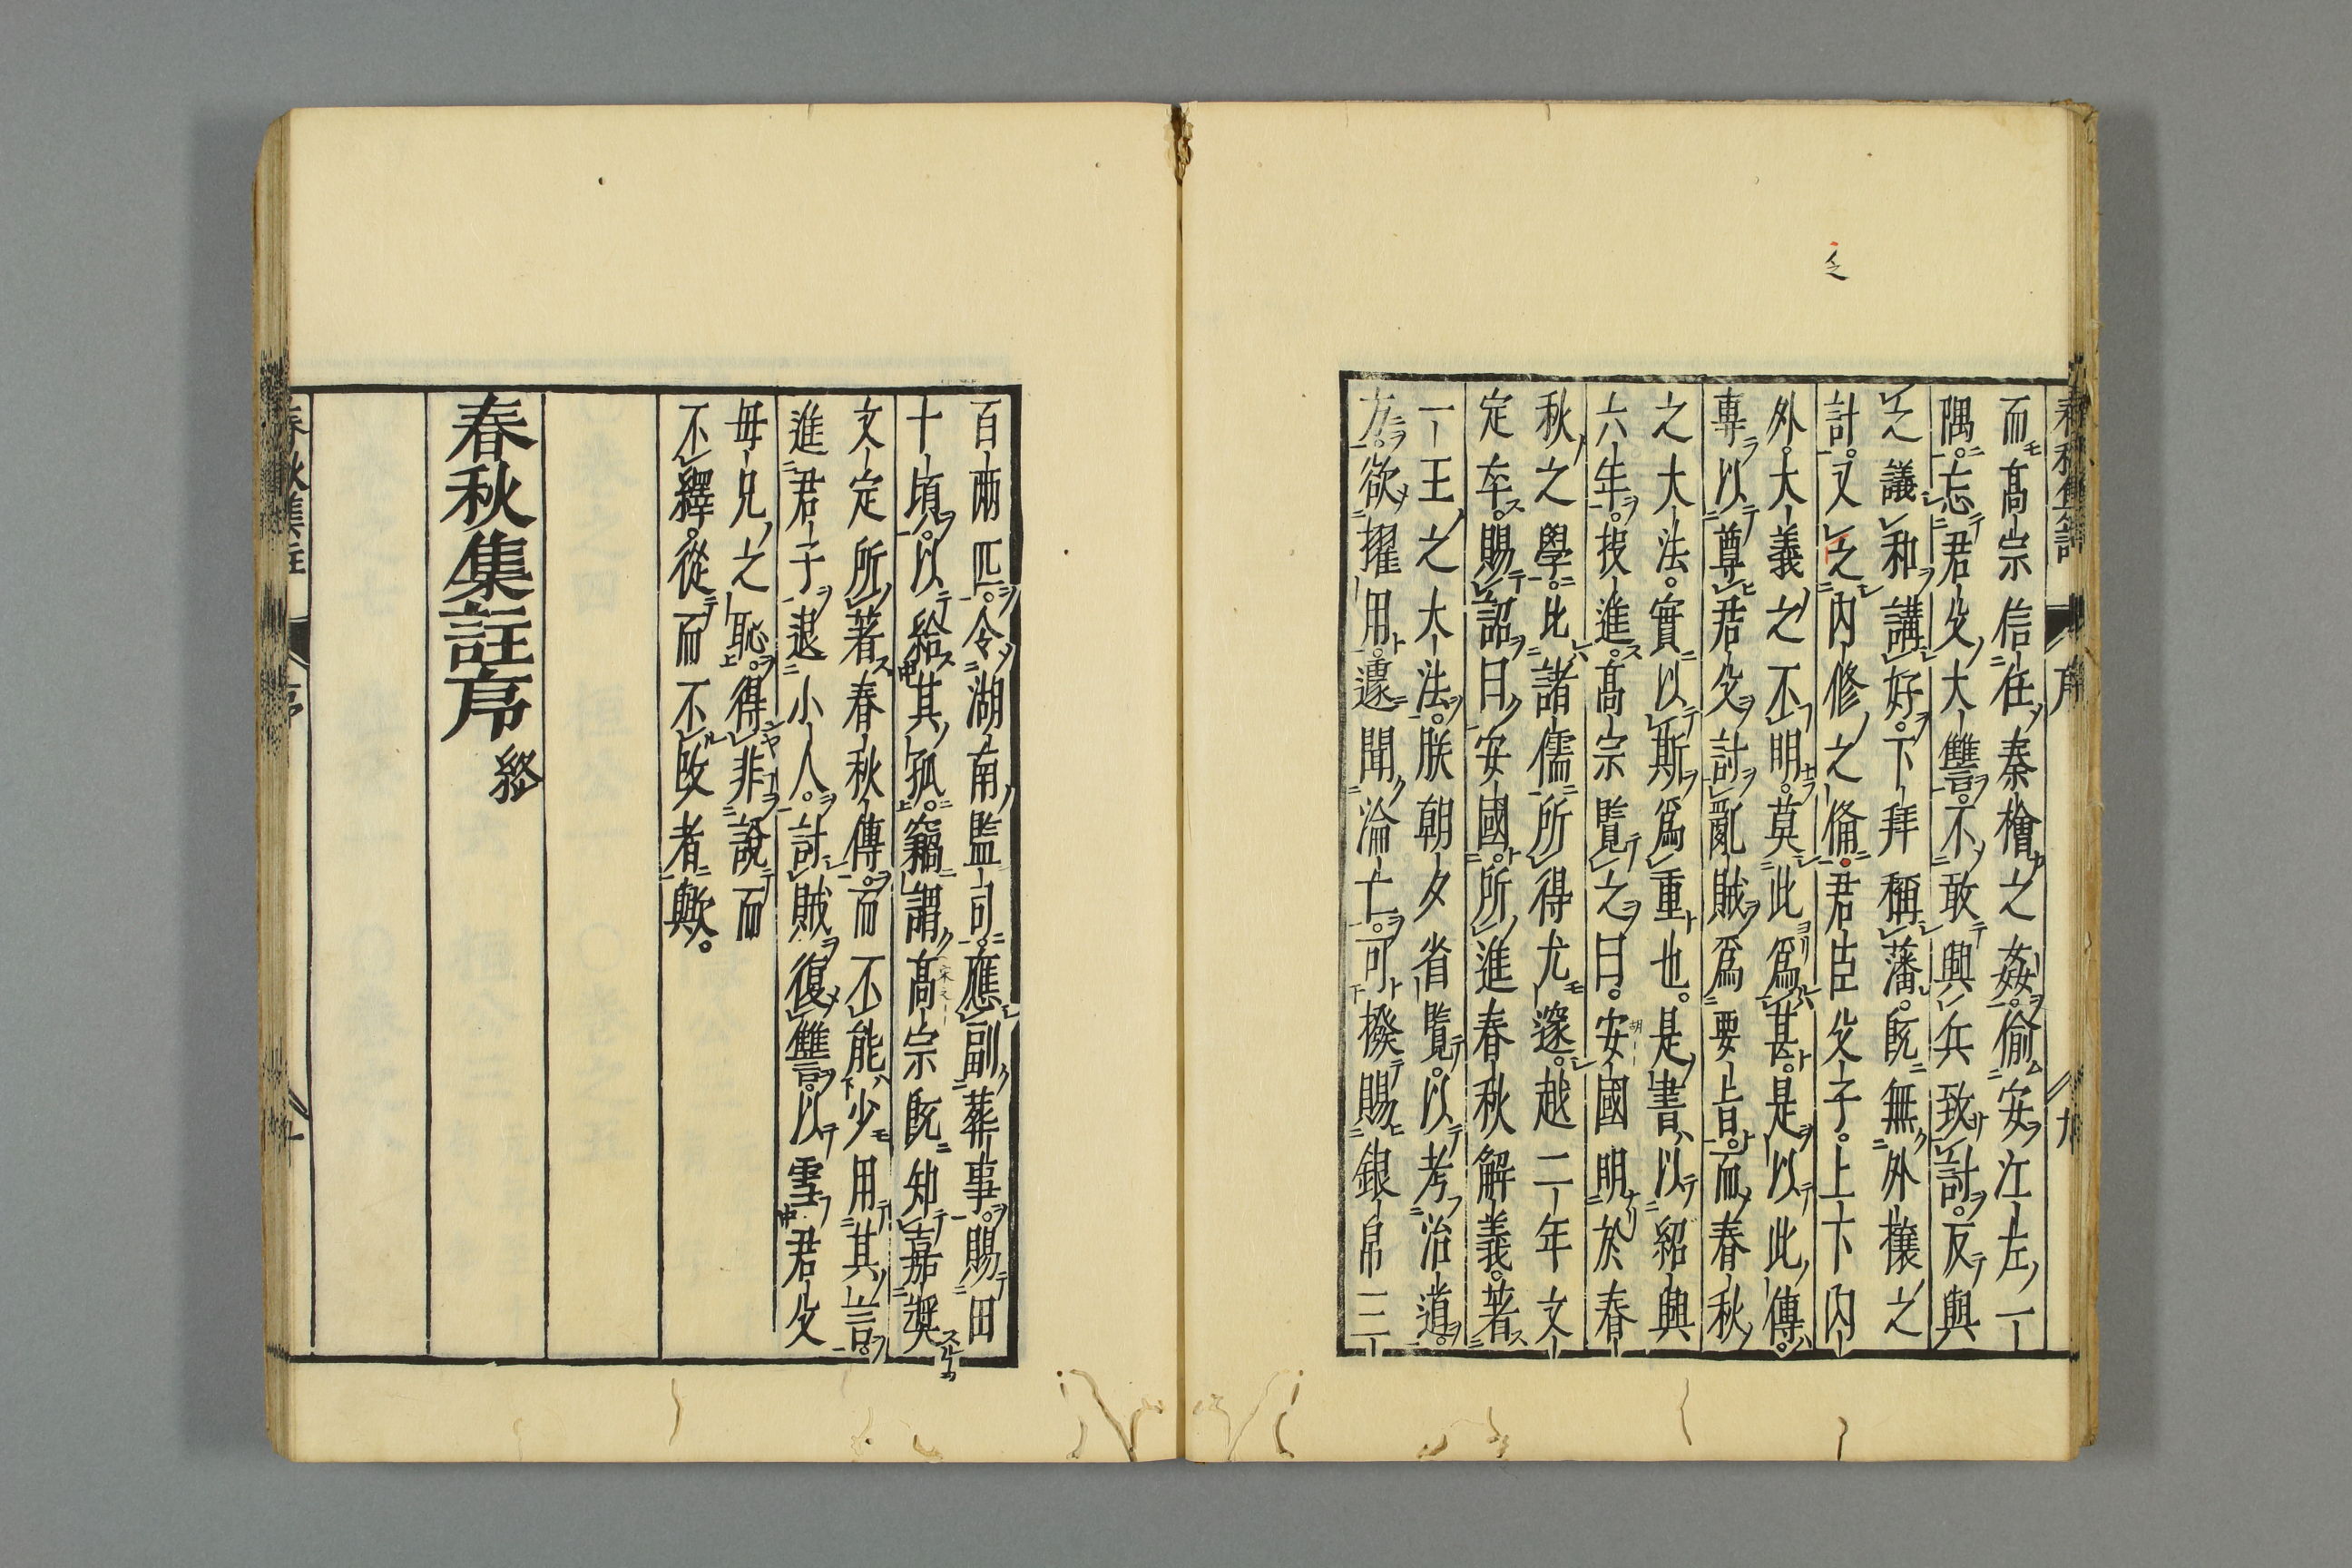 而高宗信任秦檜之姦偷安江左一
隅忘君父大讐不敢興兵致討反與
之議和講好下拜稱藩既無外攘之
計又乏內修之備君臣父子上下內
外大義之不明莫此爲甚是以此傳
專以尊君父討亂賊爲要旨而春秋
之大法實以斯爲重也是書以紹興
六年投進高宗覧之曰安國明於春
秋之學比諸儒所得尤邃越二年文
定卒賜詔曰安國所進春秋解義著
一王之大法朕朝夕省覧以考治道
方欲擢用遽聞淪亡可撥賜銀帛三
百兩匹令湖南監司應副葬事賜田
十頃以給其孤竊謂高宗既知嘉奬
文定所著春秋傳而不能少用其言
進君子退小人討賊復讐以雪君父
母兄之恥得非說而
不繹從而不改者歟
春秋集註序終
春秋集註
序